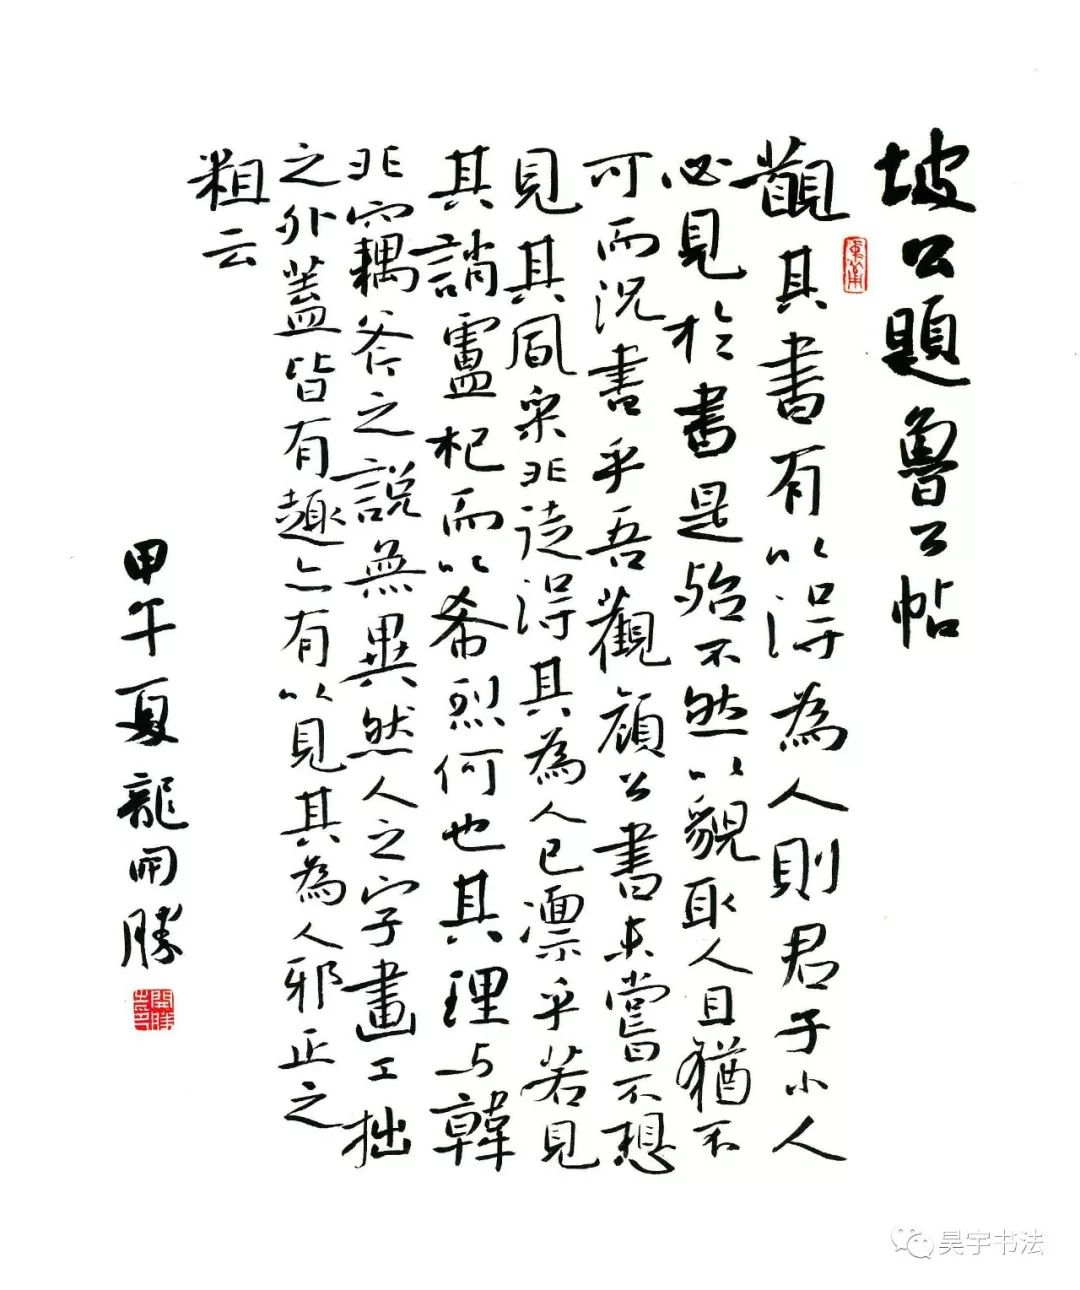 坡公題魯公帖
觀其書有以得為人則君子小人
必見於書是殆不然以貌取人且猶不
可而況書乎吾觀顏公書未嘗不想
見其風采非徒得其為人已凛乎若見
其誚盧杞而以希烈何也其理与韓
非竊斧之說無異然人之字畫工拙
之外蓋皆有趣亦有以見其為人邪正之
粗云
甲午夏龍開勝
昊宇书法